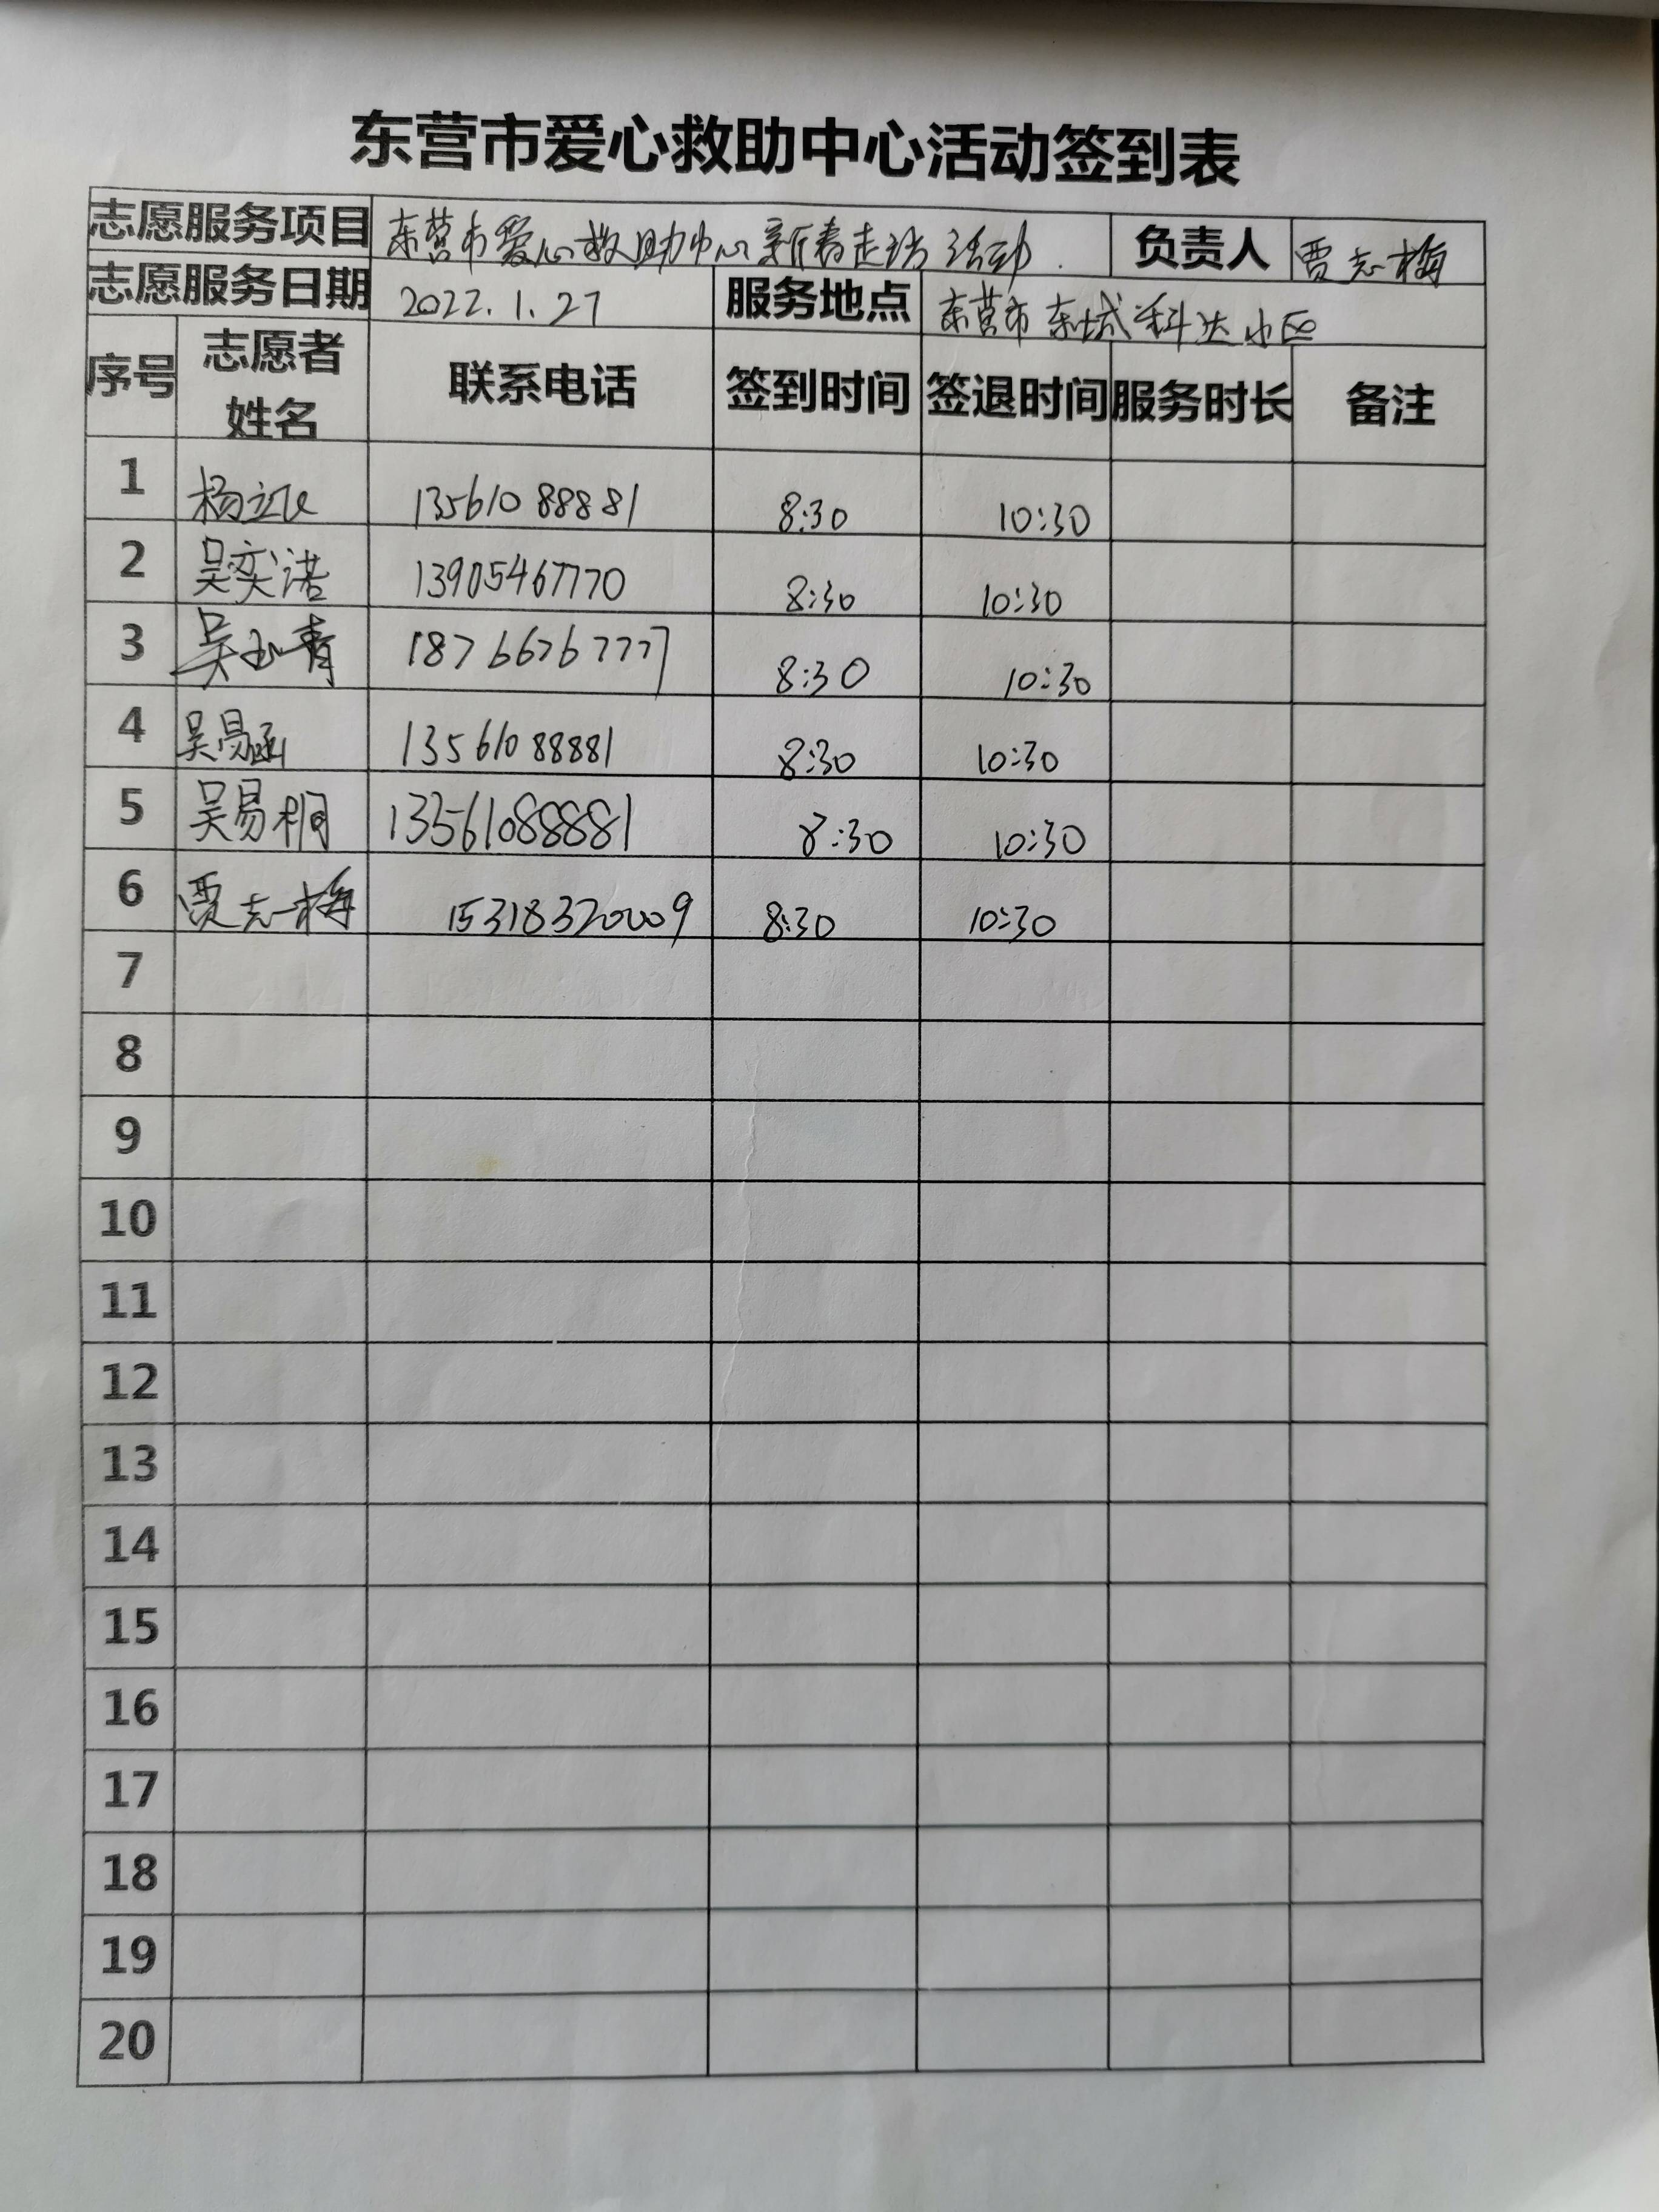 东营市爱心救助中心活动签到表
志愿服务项目 东营市爱心救助中心新春走访活动. 负责人 贾志梅
志愿服务日期 2022.1.27 服务地点 东营市东城科达小区
序号 志愿者姓名 联系电话 签到时间 签退时间 服务时长 备注
1 杨立 13561088881 8:30 10:30
2 吴奕诺 13905467770 8:30 10:30
3 吴玉青 18766767777 8:30 10:30
4 吴易涵 13561088881 8:30 10:30
5 吴易桐 13561088881 8:30 10:30
6 贾志梅 15318320009 8:30 10:30
7
8
9
10
11
12
13
14
15
16
17
18
19
20